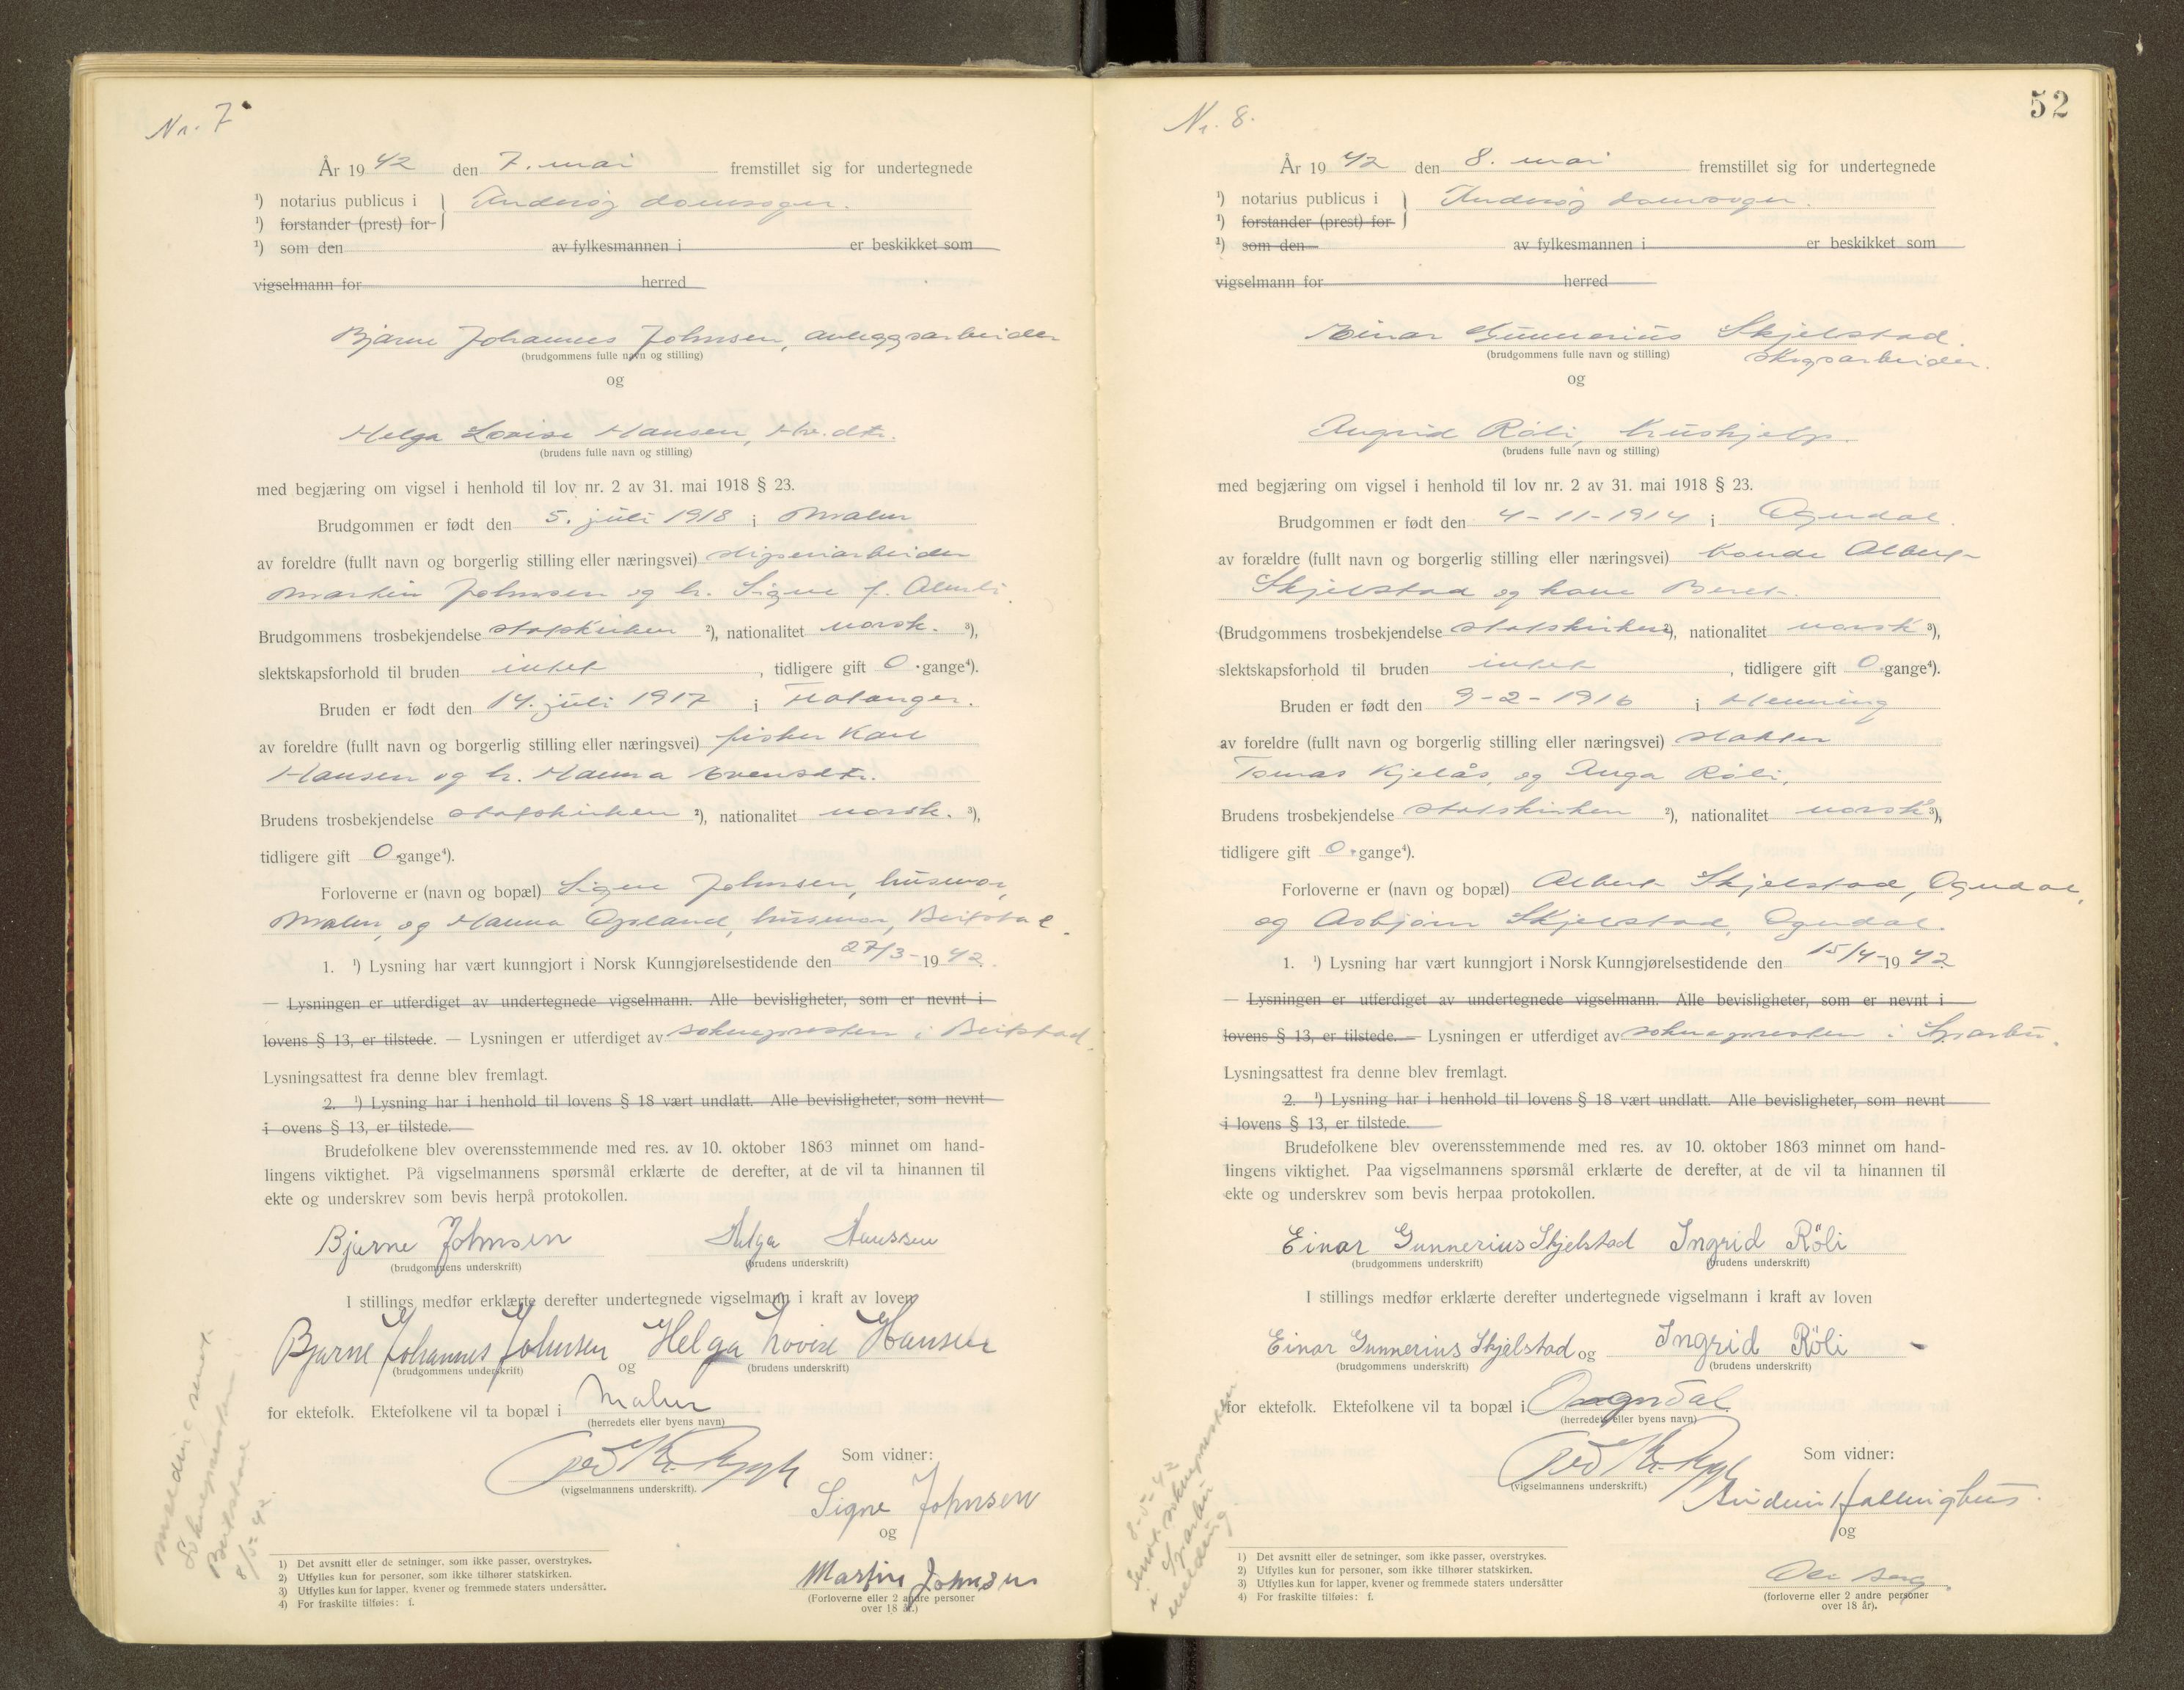 Nr. 7
År 1942 den 7. mai fremstillet sig for undertegnede
¹) notarius publicus i } Inderøy domsogn.
¹) forstander (prest) for
¹) som den av fylkesmannen i er beskikket som
vigselmann for herred
Bjarne Johannes Johnsen, anleggsarbeider
(brudgommens fulle navn og stilling)
og
Helga Lovise Hansen, Hr. dtr.
(brudens fulle navn og stilling)
med begjæring om vigsel i henhold til lov nr. 2 av 31. mai 1918 § 23.
Brudgommen er født den 5. juli 1918 i Malm
av foreldre (fullt navn og borgerlig stilling eller næringsvei) sliperiarbeider
Martin Johnsen og h. Signe f. Almli.
Brudgommens trosbekjendelse statskirken ²), nationalitet norsk. ³),
slektskapsforhold til bruden intet, tidligere gift 0 gange⁴).
Bruden er født den 14. juli 1917 i Flatanger.
av foreldre (fullt navn og borgerlig stilling eller næringsvei) fisker Karl
Hansen og h. Hanna Evensdtr.
Brudens trosbekjendelse statskirken ²), nationalitet norsk. ³),
tidligere gift 0 gange⁴).
Forloverne er (navn og bopæl) Signe Johnsen, husmor,
Malm, og Hanna Opland, husmor, Beitstad.
1. ¹) Lysning har vært kunngjort i Norsk Kunngjørelsestidende den 27/3-1942.
— Lysningen er utferdiget av undertegnede vigselmann. Alle bevisligheter, som er nevnt i
lovens § 13, er tilstede. — Lysningen er utferdiget av soknepresten i Beitstad.
Lysningsattest fra denne blev fremlagt.
2. ¹) Lysning har i henhold til lovens § 18 vært undlatt. Alle bevisligheter, som nevnt
i ovens § 13, er tilstede.
Brudefolkene blev overensstemmende med res. av 10. oktober 1863 minnet om hand-
lingens viktighet. På vigselmannens spørsmål erklærte de derefter, at de vil ta hinannen til
ekte og underskrev som bevis herpå protokollen.
Bjarne Johnsen Helga Hanssen
(brudgommens underskrift) (brudens underskrift)
I stillings medfør erklærte derefter undertegnede vigselmann i kraft av loven
Bjarne Johannes Johnsen og Helga Lovise Hansen
(brudgommens underskrift) (brudens underskrift)
for ektefolk. Ektefolkene vil ta bopæl i Malm
(herredets eller byens navn)
Kr. Rygh
(vigselmannens underskrift).
Som vidner:
Signe Johnsen
og
Martin Johnsen
(Forloverne eller 2 andre personer
over 18 år.)
melding sendt
Soknepresten i
Beitstad
8/5-42.
1) Det avsnitt eller de setninger, som ikke passer, overstrykes.
2) Utfylles kun for personer, som ikke tilhører statskirken.
3) Utfylles kun for lapper, kvener og fremmede staters undersåtter.
4) For fraskilte tilføies: f.
52
Nr. 8.
År 1942 den 8. mai fremstillet sig for undertegnede
¹) notarius publicus i } Inderøy domsogn.
¹) forstander (prest) for
¹) som den av fylkesmannen i er beskikket som
vigselmann for herred
Einar Gunnerius Skjelstad.
(brudgommens fulle navn og stilling) Skogsarbeider.
og
Ingrid Röli, hushjelp.
(brudens fulle navn og stilling)
med begjæring om vigsel i henhold til lov nr. 2 av 31. mai 1918 § 23.
Brudgommen er født den 4-11-1914 i Ogndal.
av forældre (fullt navn og borgerlig stilling eller næringsvei) bonde Albert
Skjelstad og kone Beret.
(Brudgommens trosbekjendelse statskirken ²), nationalitet norsk ³),
slektskapsforhold til bruden intet, tidligere gift 0 gange⁴).
Bruden er født den 9-2-1916 i Henning
av foreldre (fullt navn og borgerlig stilling eller næringsvei) slakter
Tomas Kjelås, og Inga Röli.
Brudens trosbekjendelse statskirken ²), nationalitet norsk ³),
tidligere gift 0 gange⁴).
Forloverne er (navn og bopæl) Albert Skjelstad, Ogndal,
og Asbjørn Skjelstad, Ogndal.
1. ¹) Lysning har vært kunngjort i Norsk Kunngjørelsestidende den 15/4-1942
— Lysningen er utferdiget av undertegnede vigselmann. Alle bevisligheter, som er nevnt i
lovens § 13, er tilstede. — Lysningen er utferdiget av soknepresten i Sparbu.
Lysningsattest fra denne blev fremlagt.
2. ¹) Lysning har i henhold til lovens § 18 vært undlatt. Alle bevisligheter, som nevnt
i lovens § 13, er tilstede.
Brudefolkene blev overensstemmende med res. av 10. oktober 1863 minnet om hand-
lingens viktighet. Paa vigselmannens spørsmål erklærte de derefter, at de vil ta hinannen til
ekte og underskrev som bevis herpaa protokollen.
Einar Gunnerius Skjelstad Ingrid Röli
(brudgommens underskrift) (brudens underskrift)
I stillings medfør erklærte derefter undertegnede vigselmann i kraft av loven
Einar Gunnerius Skjelstad og Ingrid Röli
(brudgommens underskrift) (brudens underskrift)
for ektefolk. Ektefolkene vil ta bopæl i Ogndal
(herredets eller byens navn)
Kr. Rygh
(vigselmannens underskrift.)
Som vidner:
Hallinghus.
og
Berg
(forloverne eller 2 andre personer
over 18 år).
8-5-42
Sendt soknepresten
i Sparbu
melding
1) Det avsnitt eller de setninger, som ikke passer, overstrykes.
2) Utfylles kun for personer, som ikke tilhører statskirken.
3) Utfylles kun for lapper, kvener og fremmede staters undersåtter
4) For fraskilte tilføies: f.